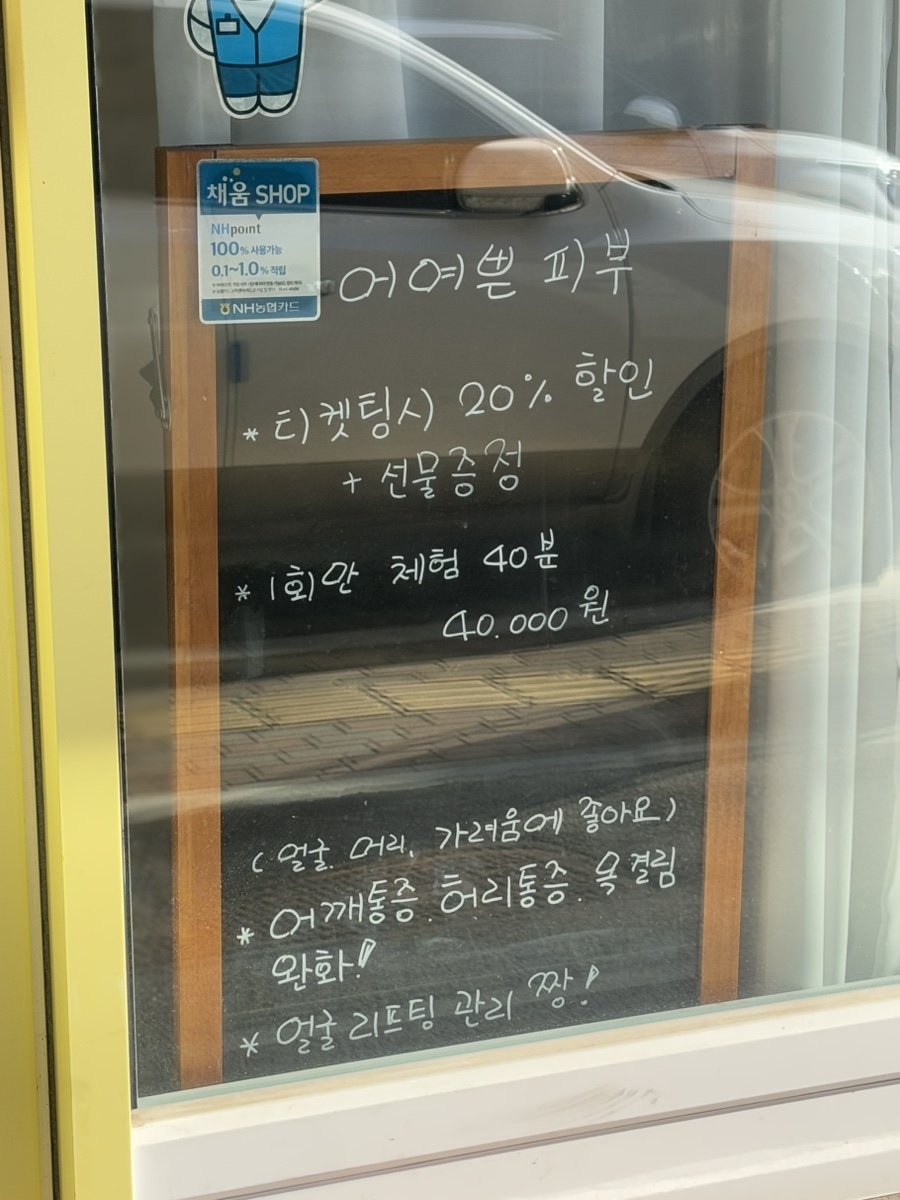 채움 SHOP
NHpoint
100% 사용가능
0.1~1.0% 적립
NH농협카드
어여쁜 피부
* 티켓팅시 20% 할인
+ 선물증정
* 1회만 체험 40분
40.000원
(얼굴. 머리, 가려움에 좋아요)
* 어깨통증. 허리통증. 목결림
완화!
* 얼굴리프팅 관리 짱!